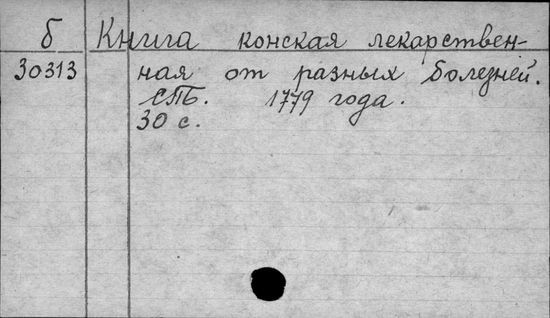 б Книга конская лекарствен-
30313 ная от разных болезней.
СПБ. 1779 года.
30 с.